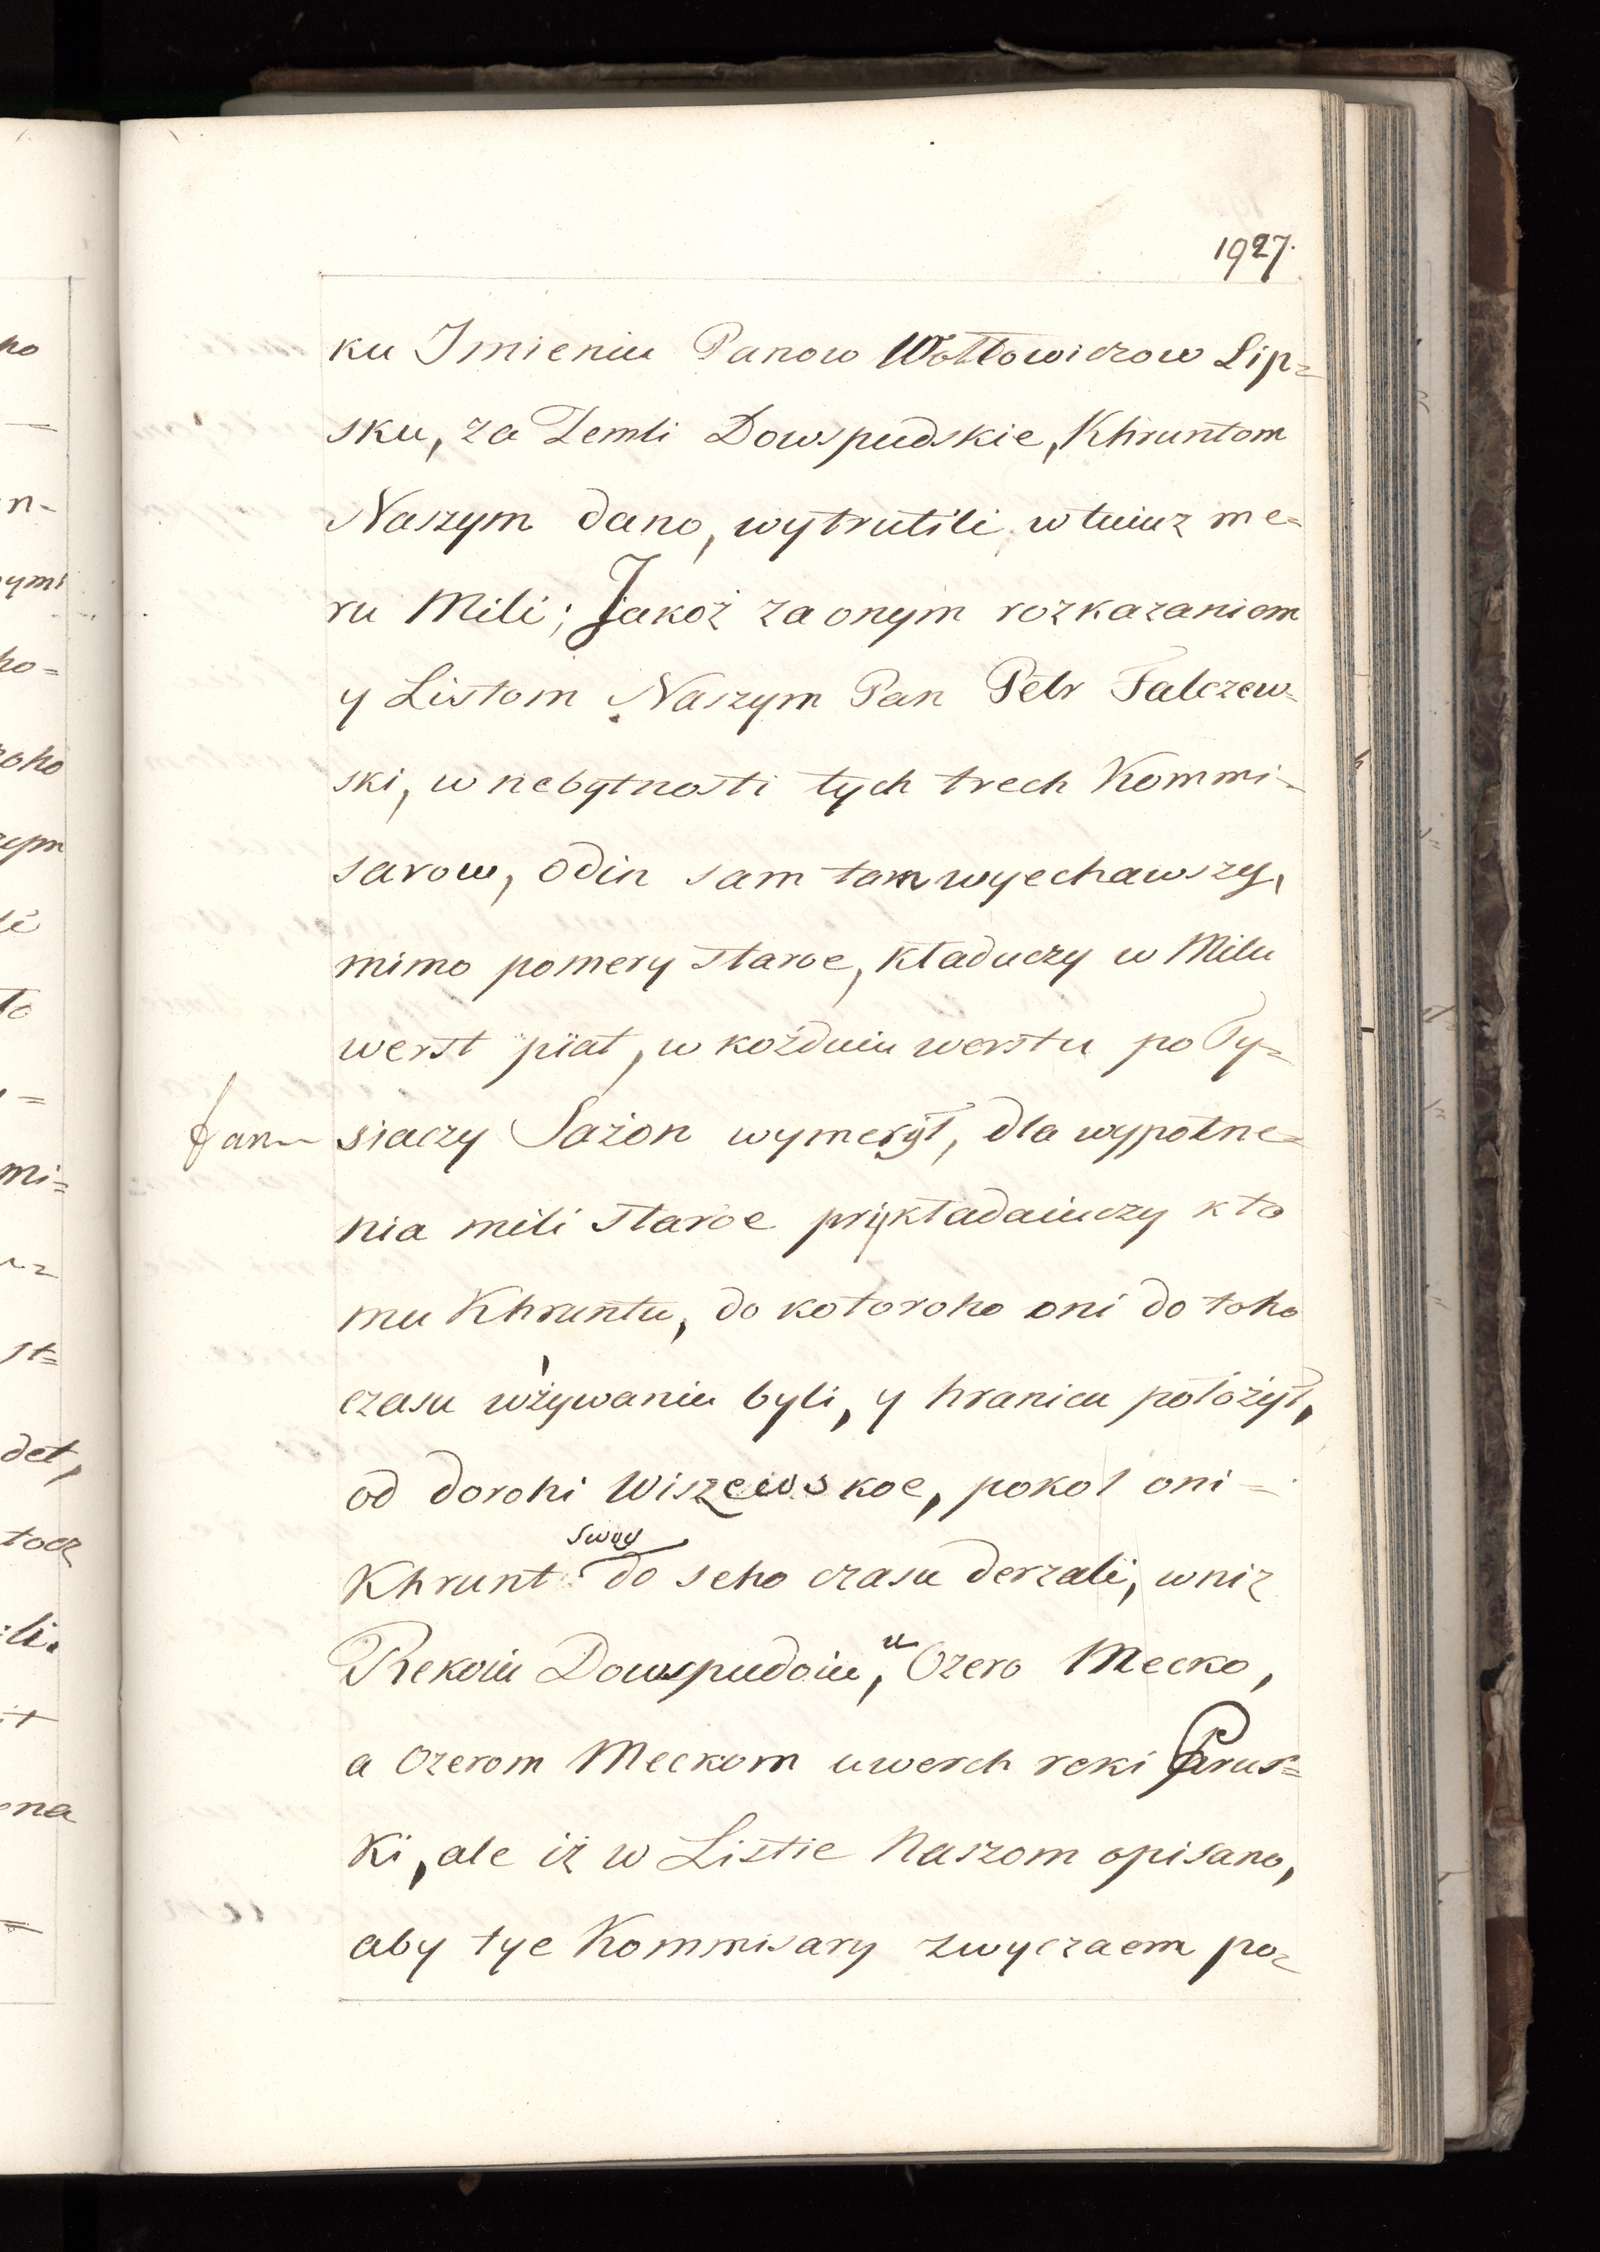 1927.
ku Imieniu Panow Wołłowiczow Lip=
sku, za Zemli Dowspudskie, Khruntom
Naszym dano, wytrutili, w tuiuz me=
ru Mili; Jakoż za onym rozkazaniem
y Listom Naszym Pan Petr Falczew=
ski, w nebytnosti tych trech Kommi=
sarow, odin sam tam wyechawszy,
mimo pomery staroe, kładuczy w Milu
werst piat, w kożduiu werstu po Ty=
siaczy Sażon wymerył, dla wypołne=
nia mili staroe prykładaiuczy k to
mu Khruntu, do kotoroho oni do toho
czasu wżywaniu byli, y hranicu położył,
od dorohi Wiszewskoe, pokol oni=
swoy
Khrunt do seho czasu derzali, wniz
Rekoiu Dowspudoiu, u Ozero Mecko,
a Ozerom Meckom uwerch reki Prus=
ki, ale iż w Listie Naszom opisano,
aby tye Kommisary zwyczaem po=
no
n-
ymi
ho=
oho
zym
to
mi=
st=
det,
tocz
li.
ena